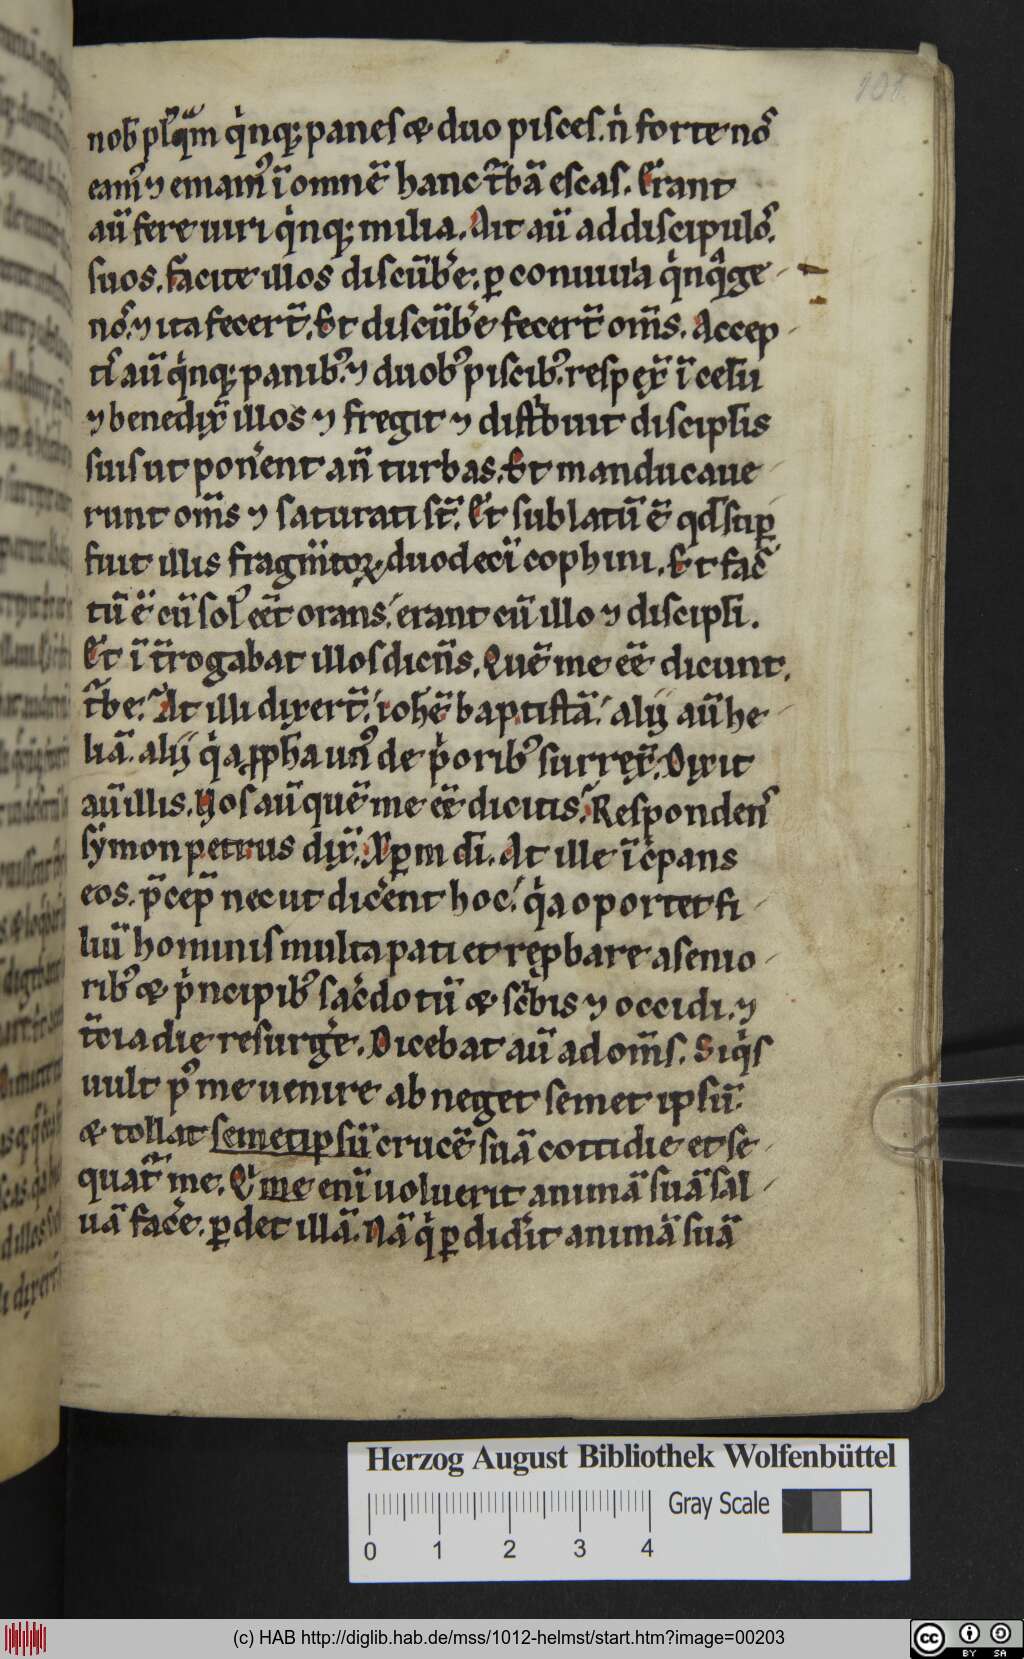 nob̄ plꝰꝗ̃m qͥnqꝫ panes ⁊ duo pisces. nͥ forte nos
eamꝰ ⁊ emamꝰ ĩ omnẽ hanc tͬbã escas. Erant
aũ fere uiri qͥnqꝫ milia. Ait aũ ad discipulos
suos. facite illos discũbe͛. ꝑ conuiuia qͥnqͣge
nos. ⁊ ita fecert̃. Et discũbe͛ fecert̃ om̃s. Accep
tis aũ qͥnqꝫ panibꝰ. ⁊ duobꝰ piscibꝰ. respex̃ ĩ celũ
⁊ benedix̃ illos ⁊ fregit ⁊ distͥbuit discipłis
suis ut pone͛nt añ turbas. Et manducaue
runt om̃s ⁊ saturati st̃. Et sublatũ ẽ qđ suꝑ
fuit illis fragm̃toꝝ duodecĩ cophini. Et fac
tũ ẽ cũ solꝰ eẽt orans. erant cũ illo ⁊ discipłi.
Et ĩt̃rogabat illos dicñs. Quẽ me eẽ dicunt
tͬbe. At illi dixert̃. ioħẽ baptistã. alij aũ he
liã. alij qͥa ꝓpħa unꝰ de pͥoribꝰ surrex̃. Dixit
aũ illis. Uos aũ quẽ me eẽ dicitis. Respondens
symon petrus dix̃. Xp̃m di̅. At ille ĩc͛pans
eos. p̃cep̃ ne cui dice͛nt hoc. qͥa oportet fi
liũ hominis multa pati et reꝓbare a senio
ribꝰ ⁊ pͥncipibꝰ sac͛dotũ ⁊ scͥbis ⁊ occidi. ⁊
t̃cia die resurge͛. Dicebat aũ ad om̃s. Si qͥs
uult pꝰ me uenire abneget semet ipsũ.
⁊ tollat semetipsũ crucẽ suã cottidie et se
quat̃ me. Qͥ me enĩ uoluerit animã suã sal
uã face͛. ꝑdet illã. Nã qͥ ꝑdide͛it animã suã
Herzog August Bibliothek Wolfenbüttel
Gray Scale
0 1 2 3 4
(c) HAB http://diglib.hab.de/mss/1012-helmst/start.htm?image=00203
cc BY SA